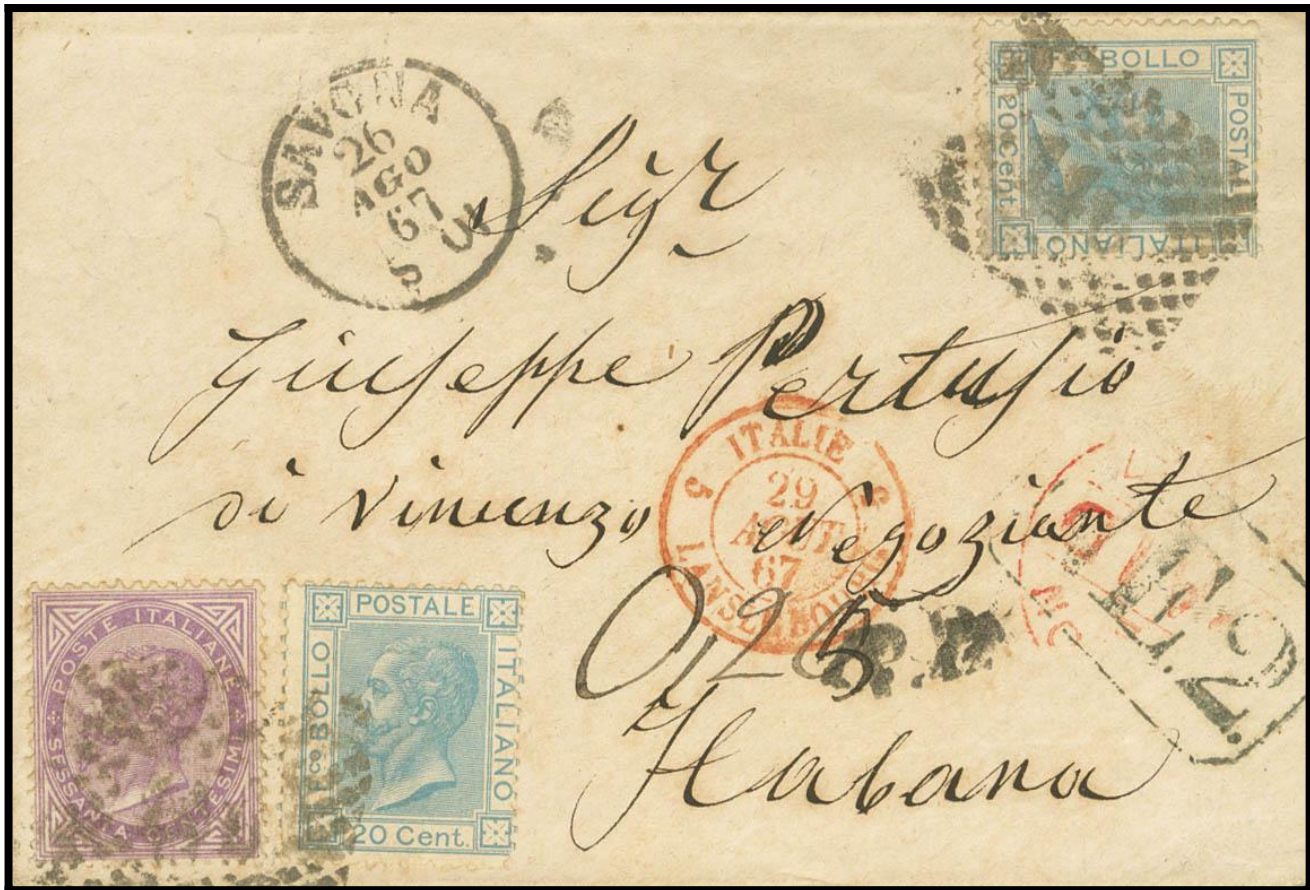 SAVONA
26
AGO
67
5 S
F.CO BOLLO
POSTALE
ITALIANO
20 Cent.
Sigr
Giuseppe Pertusio
di Vincenzo Negoziante
Habana
5 ITALIE 5
29
AOUT
67
LANSLEBOURG
P.D.
0,26
POSTE ITALIANE
SESSANTA CENTESIMI
F.CO BOLLO
POSTALE
ITALIANO
20 Cent.